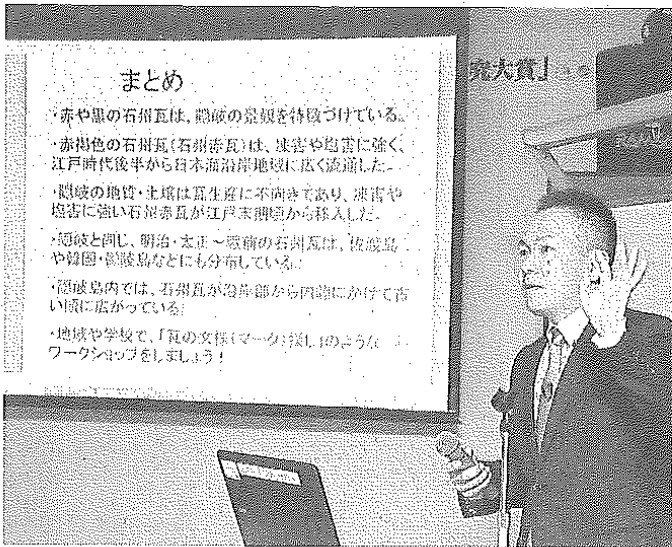 まとめ
・赤や黒の石州瓦は、隠岐の景観を特徴づけている。
・赤褐色の石州瓦(石州赤瓦)は、凍害や塩害に強く、
江戸時代後半から日本海沿岸地域に広く流通した。
・隠岐の地質・土壌は瓦生産に不向きであり、凍害や
塩害に強い石州赤瓦が江戸末期頃から移入した。
・隠岐と同じ、明治・大正～戦前の石州瓦は、佐渡島
や韓国・鬱陵島などにも分布している。
・隠岐島内では、石州瓦が沿岸部から内陸にかけて古
い順に広がっている。
・地域や学校で、「瓦の文様(マーク)探し」のような
ワークショップをしましょう！
究大賞」